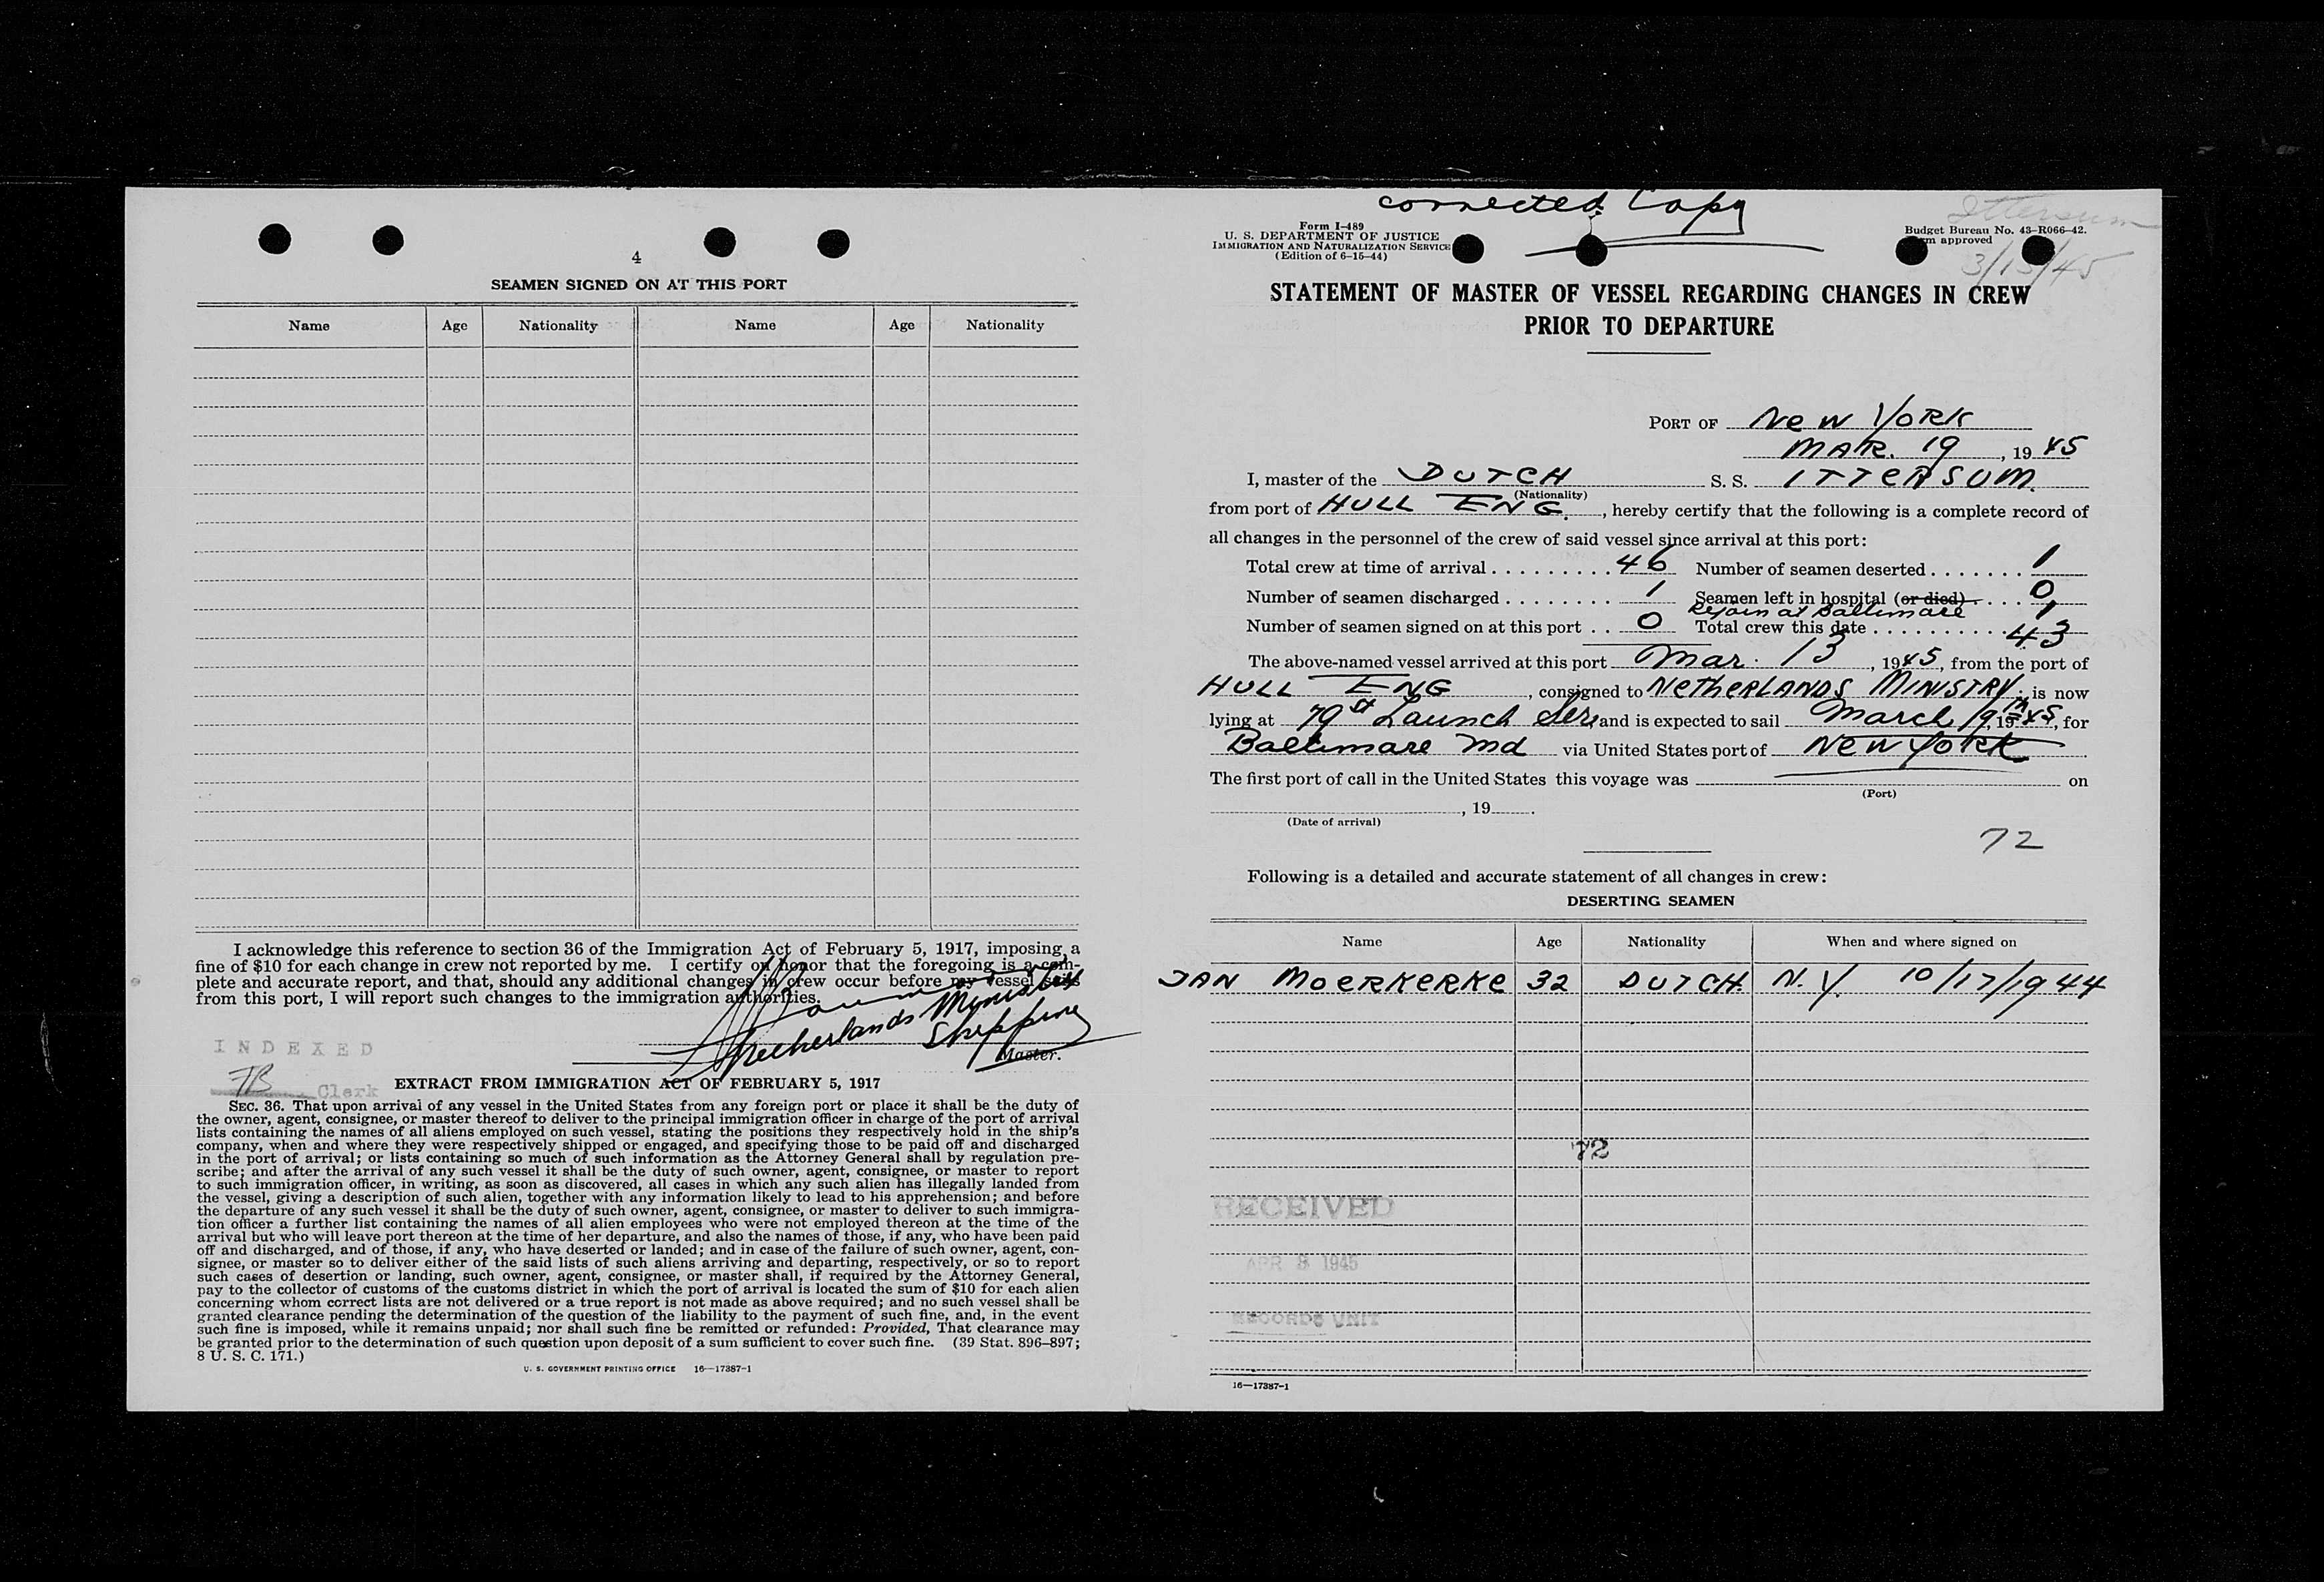 4
SEAMEN SIGNED ON AT THIS PORT
Name Age Nationality Name Age Nationality
I acknowledge this reference to section 36 of the Immigration Act of February 5, 1917, imposing a
fine of $10 for each change in crew not reported by me. I certify on honor that the foregoing is a com-
plete and accurate report, and that, should any additional changes in crew occur before my vessel sails
from this port, I will report such changes to the immigration authorities.
Netherlands
Shipping
Master.
INDEXED
FB Clerk
EXTRACT FROM IMMIGRATION ACT OF FEBRUARY 5, 1917
SEC. 36. That upon arrival of any vessel in the United States from any foreign port or place it shall be the duty of
the owner, agent, consignee, or master thereof to deliver to the principal immigration officer in charge of the port of arrival
lists containing the names of all aliens employed on such vessel, stating the positions they respectively hold in the ship's
company, when and where they were respectively shipped or engaged, and specifying those to be paid off and discharged
in the port of arrival; or lists containing so much of such information as the Attorney General shall by regulation pre-
scribe; and after the arrival of any such vessel it shall be the duty of such owner, agent, consignee, or master to report
to such immigration officer, in writing, as soon as discovered, all cases in which any such alien has illegally landed from
the vessel, giving a description of such alien, together with any information likely to lead to his apprehension; and before
the departure of any such vessel it shall be the duty of such owner, agent, consignee, or master to deliver to such immigra-
tion officer a further list containing the names of all alien employees who were not employed thereon at the time of the
arrival but who will leave port thereon at the time of her departure, and also the names of those, if any, who have been paid
off and discharged, and of those, if any, who have deserted or landed; and in case of the failure of such owner, agent, con-
signee, or master so to deliver either of the said lists of such aliens arriving and departing, respectively, or so to report
such cases of desertion or landing, such owner, agent, consignee, or master shall, if required by the Attorney General,
pay to the collector of customs of the customs district in which the port of arrival is located the sum of $10 for each alien
concerning whom correct lists are not delivered or a true report is not made as above required; and no such vessel shall be
granted clearance pending the determination of the question of the liability to the payment of such fine, and, in the event
such fine is imposed, while it remains unpaid; nor shall such fine be remitted or refunded: Provided, That clearance may
be granted prior to the determination of such question upon deposit of a sum sufficient to cover such fine. (39 Stat. 896–897;
8 U. S. C. 171.)
U. S. GOVERNMENT PRINTING OFFICE 16—17387-1
corrected Copy
Ittersum
3/15/45
Form I-489
U. S. DEPARTMENT OF JUSTICE
IMMIGRATION AND NATURALIZATION SERVICE
(Edition of 6-15-44)
Budget Bureau No. 43-R066-42.
approved
STATEMENT OF MASTER OF VESSEL REGARDING CHANGES IN CREW
PRIOR TO DEPARTURE
PORT OF New YORK
MAR. 19, 1945
I, master of the DUTCH S. S. ITTERSUM
(Nationality)
from port of HULL ENG., hereby certify that the following is a complete record of
all changes in the personnel of the crew of said vessel since arrival at this port:
Total crew at time of arrival 46 Number of seamen deserted 1
Number of seamen discharged 1 Seamen left in hospital (or died) 0
Rejoin at Baltimore 1
Number of seamen signed on at this port 0 Total crew this date 43
The above-named vessel arrived at this port Mar. 13, 1945, from the port of
HULL ENG, consigned to NETHERLANDS MINISTRY; is now
lying at 79 St Launch and is expected to sail March 19th 1945, for
Baltimore Md via United States port of NEW YORK
The first port of call in the United States this voyage was on
(Port)
, 19 .
(Date of arrival)
72
Following is a detailed and accurate statement of all changes in crew:
DESERTING SEAMEN
Name Age Nationality When and where signed on
JAN MOERKERKE 32 DUTCH. N.Y. 10/17/1944
72
RECEIVED
APR 8 1945
RECORDS UNIT
16—17387-1